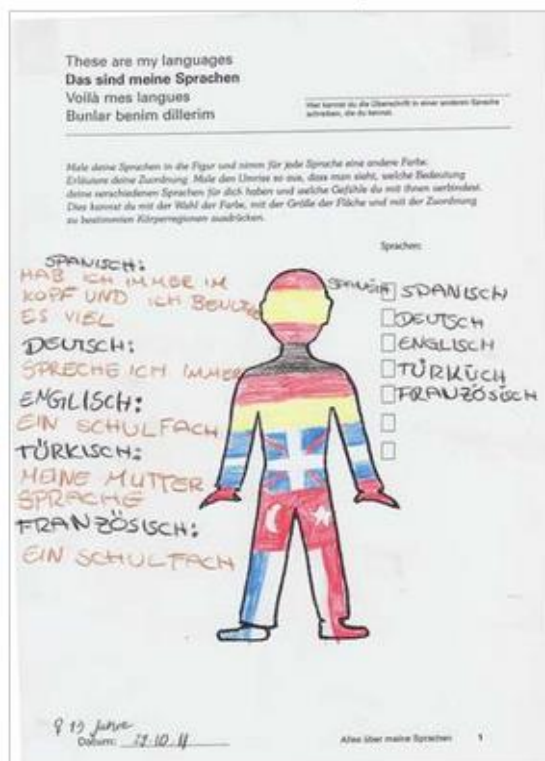 These are my languages
Das sind meine Sprachen
Voilà mes langues
Bunlar benim dillerim
Hier kannst du die Überschrift in einer anderen Sprache
schreiben, die du kennst.
Male deine Sprachen in die Figur und nimm für jede Sprache eine andere Farbe.
Erläutere deine Zuordnung. Male den Umriss so aus, dass man sieht, welche Bedeutung
deine verschiedenen Sprachen für dich haben und welche Gefühle du mit ihnen verbindest.
Dies kannst du mit der Wahl der Farbe, mit der Größe der Fläche und mit der Zuordnung
zu bestimmten Körperregionen ausdrücken.
Sprachen:
SPANISCH:
HAB ICH IMMER IM
KOPF UND ICH
ES VIEL
DEUTSCH:
SPRECHE ICH IMMER
ENGLISCH:
EIN SCHULFACH
TÜRKISCH:
MEINE MUTTER
SPRACHE
FRANZÖSISCH:
EIN SCHULFACH
SPANISCH
DEUTSCH
ENGLISCH
TÜRKISCH
FRANZÖSISCH
Jahre
Datum:
Alles über meine Sprachen 1